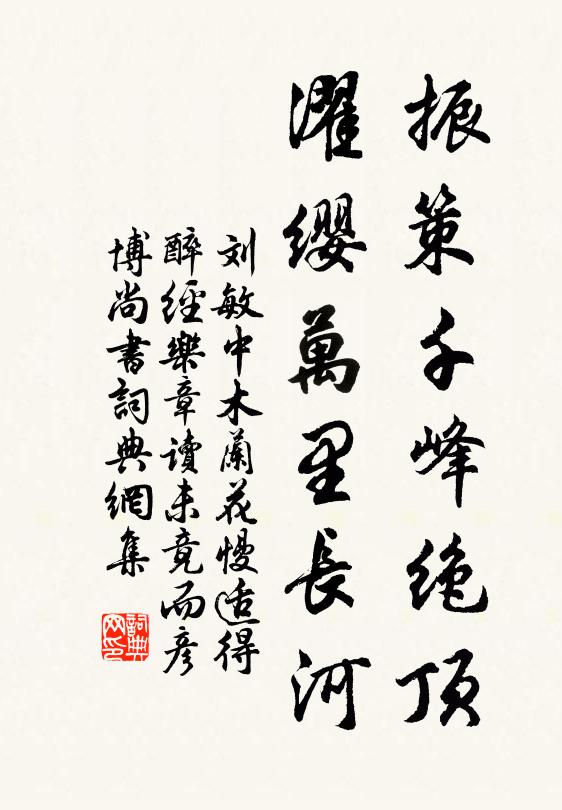 振策千峰绝顶
濯纓萬里長河
刘敏中木蘭花慢适得
醉經樂章讀未竟而彦
博尚書詞典網集
詞典网印